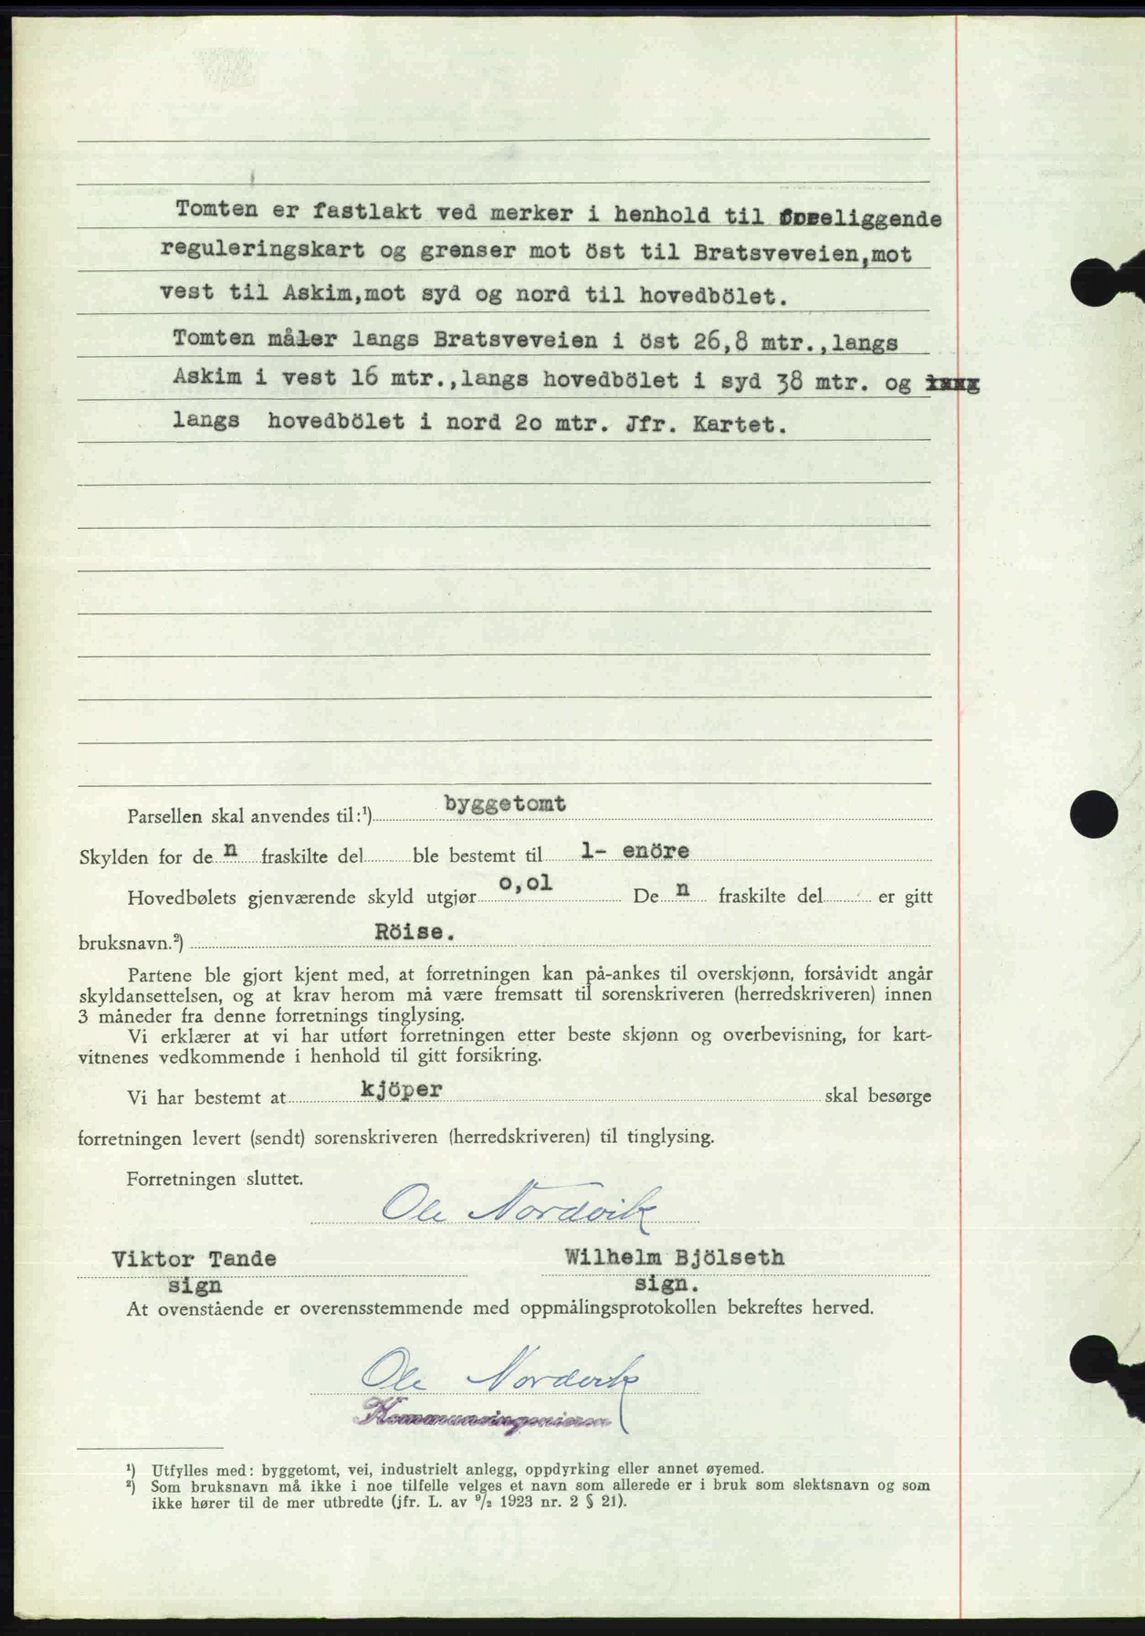 Tomten er fastlakt ved merker i henhold til foreliggende
reguleringskart og grenser mot öst til Bratsveveien,mot
vest til Askim,mot syd og nord til hovedbölet.
Tomten måler langs Bratsveveien i öst 26,8 mtr.,langs
Askim i vest 16 mtr.,langs hovedbölet i syd 38 mtr. og
langs hovedbölet i nord 2o mtr. Jfr. Kartet.
Parsellen skal anvendes til:¹) byggetomt
Skylden for de n fraskilte del ble bestemt til 1- enöre
Hovedbølets gjenværende skyld utgjør o,ol De n fraskilte del er gitt
bruksnavn.²) Röise.
Partene ble gjort kjent med, at forretningen kan på-ankes til overskjønn, forsåvidt angår
skyldansettelsen, og at krav herom må være fremsatt til sorenskriveren (herredskriveren) innen
3 måneder fra denne forretnings tinglysing.
Vi erklærer at vi har utført forretningen etter beste skjønn og overbevisning, for kart-
vitnenes vedkommende i henhold til gitt forsikring.
Vi har bestemt at kjöper skal besørge
forretningen levert (sendt) sorenskriveren (herredskriveren) til tinglysing.
Forretningen sluttet.
Ole Nordvik
Viktor Tande Wilhelm Bjölseth
sign sign.
At ovenstående er overensstemmende med oppmålingsprotokollen bekreftes herved.
Ole Nordvik
Kommuneingeniøren
¹) Utfylles med: byggetomt, vei, industrielt anlegg, oppdyrking eller annet øyemed.
²) Som bruksnavn må ikke i noe tilfelle velges et navn som allerede er i bruk som slektsnavn og som
ikke hører til de mer utbredte (jfr. L. av ⁹/₂ 1923 nr. 2 § 21).